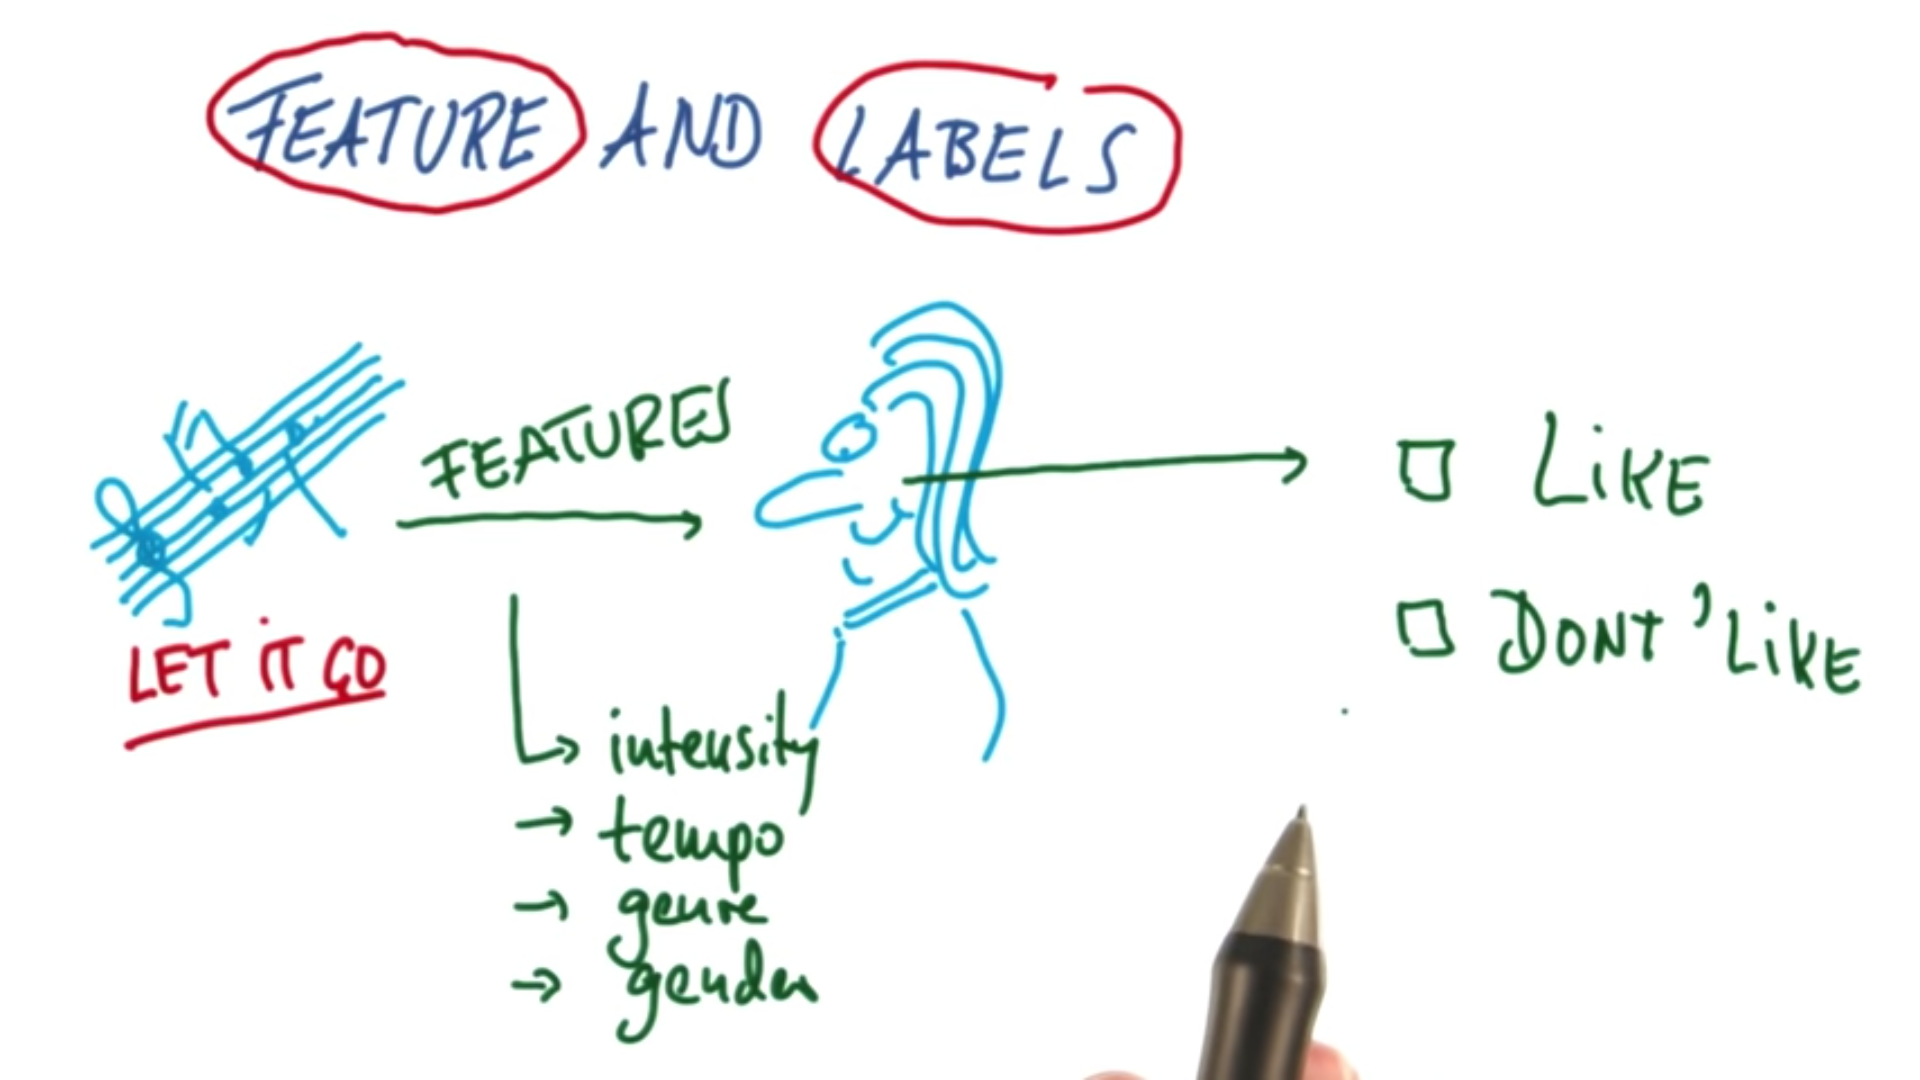 FEATURE AND LABELS
FEATURES
LET IT GO
intensity
tempo
genre
gender
LIKE
DONT 'LIKE